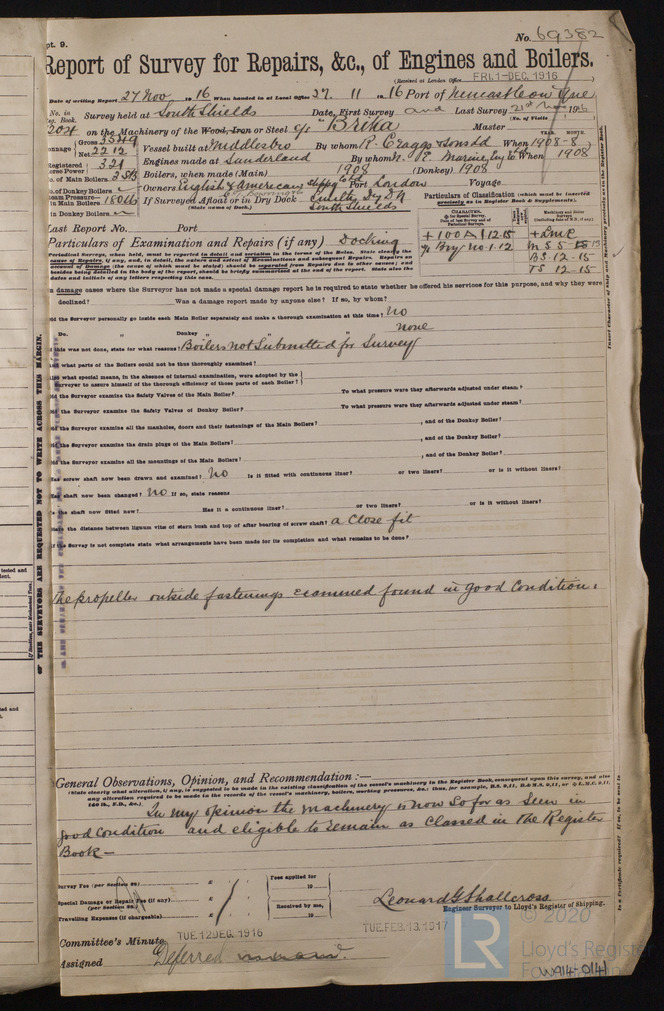 pt. 9.
No. 69382
Report of Survey for Repairs, &c., of Engines and Boilers.
(Received at London Office FRI. 1-DEC. 1916)
Date of writing Report 27 Nov 1916 When handed in at Local Office 27. 11 1916 Port of Newcastle on Tyne
No. in Reg. Book. Survey held at South Shields Date, First Survey and Last Survey 21st Nov 1916
(No. of Visits )
204 on the Machinery of the Wood, Iron or Steel Brika Master
Gross 3549
Net 2212
Vessel built at Middlesbro By whom R. Craggs & Sons Ld When 1908-8
YEAR. MONTH.
Registered Horse Power 321 Engines made at Sunderland By whom N. E. Marine Eng Co Ltd When 1908
No. of Main Boilers 2 SB Boilers, when made (Main) 1908 (Donkey) 1908
No. of Donkey Boilers Owners English & American Shippg Co Port London Voyage
Steam Pressure in Main Boilers 180 lb If Surveyed Afloat or in Dry Dock Smiths Dry Dk
(State name of Dock.) South Shields
in Donkey Boilers
Particulars of Classification (which must be inserted precisely as in Register Book & Supplements).
+100A1 12.15
+LMC
MS 5
BS. 12-15
TS 12-15
Last Report No. Port
Particulars of Examination and Repairs (if any) Docking
In damage cases where the Surveyor has not made a special damage report he is required to state whether he offered his services for this purpose, and why they were
declined? Was a damage report made by anyone else? If so, by whom?
Did the Surveyor personally go inside each Main Boiler separately and make a thorough examination at this time? No
Do. " Donkey " " " none
If this was not done, state for what reasons? Boilers not Submitted for Survey
And what parts of the Boilers could not be thus thoroughly examined?
Also what special means, in the absence of internal examination, were adopted by the
Surveyor to assure himself of the thorough efficiency of those parts of each Boiler?
Did the Surveyor examine the Safety Valves of the Main Boiler? To what pressure were they afterwards adjusted under steam?
Did the Surveyor examine the Safety Valves of Donkey Boiler? To what pressure were they afterwards adjusted under steam?
Did the Surveyor examine all the manholes, doors and their fastenings of the Main Boilers? , and of the Donkey Boiler?
Did the Surveyor examine the drain plugs of the Main Boilers? , and of the Donkey Boiler?
Did the Surveyor examine all the mountings of the Main Boilers? , and of the Donkey Boiler?
Has screw shaft now been drawn and examined? No Is it fitted with continuous liner? or two liners? or is it without liners?
Has shaft now been changed? No If so, state reasons
Is the shaft now fitted new? Has it a continuous liner? or two liners? or is it without liners?
State the distance between lignum vitæ of stern bush and top of after bearing of screw shaft? a Close fit
If the Survey is not complete state what arrangements have been made for its completion and what remains to be done?
The propeller outside fastenings examined found in good Condition.
General Observations, Opinion, and Recommendation :—
In my opinion the machinery is now So far as Seen in
good Condition and eligible to remain as Classed in the Register
Book —
Survey Fee (per Section 28) £
Special Damage or Repair Fee (if any) (per Section 28.) £
Travelling Expenses (if chargeable) £
Fees applied for
19
Received by me,
19
Leonard G Shallcross
Engineer Surveyor to Lloyd's Register of Shipping.
Committee's Minute TUE 12 DEC. 1916
TUE. FEB. 13. 1917
Assigned Deferred
OF THE SURVEYORS ARE REQUESTED NOT TO WRITE ACROSS THIS MARGIN.
LR
© 2020
Lloyd's Register
Foundation
W914-0141